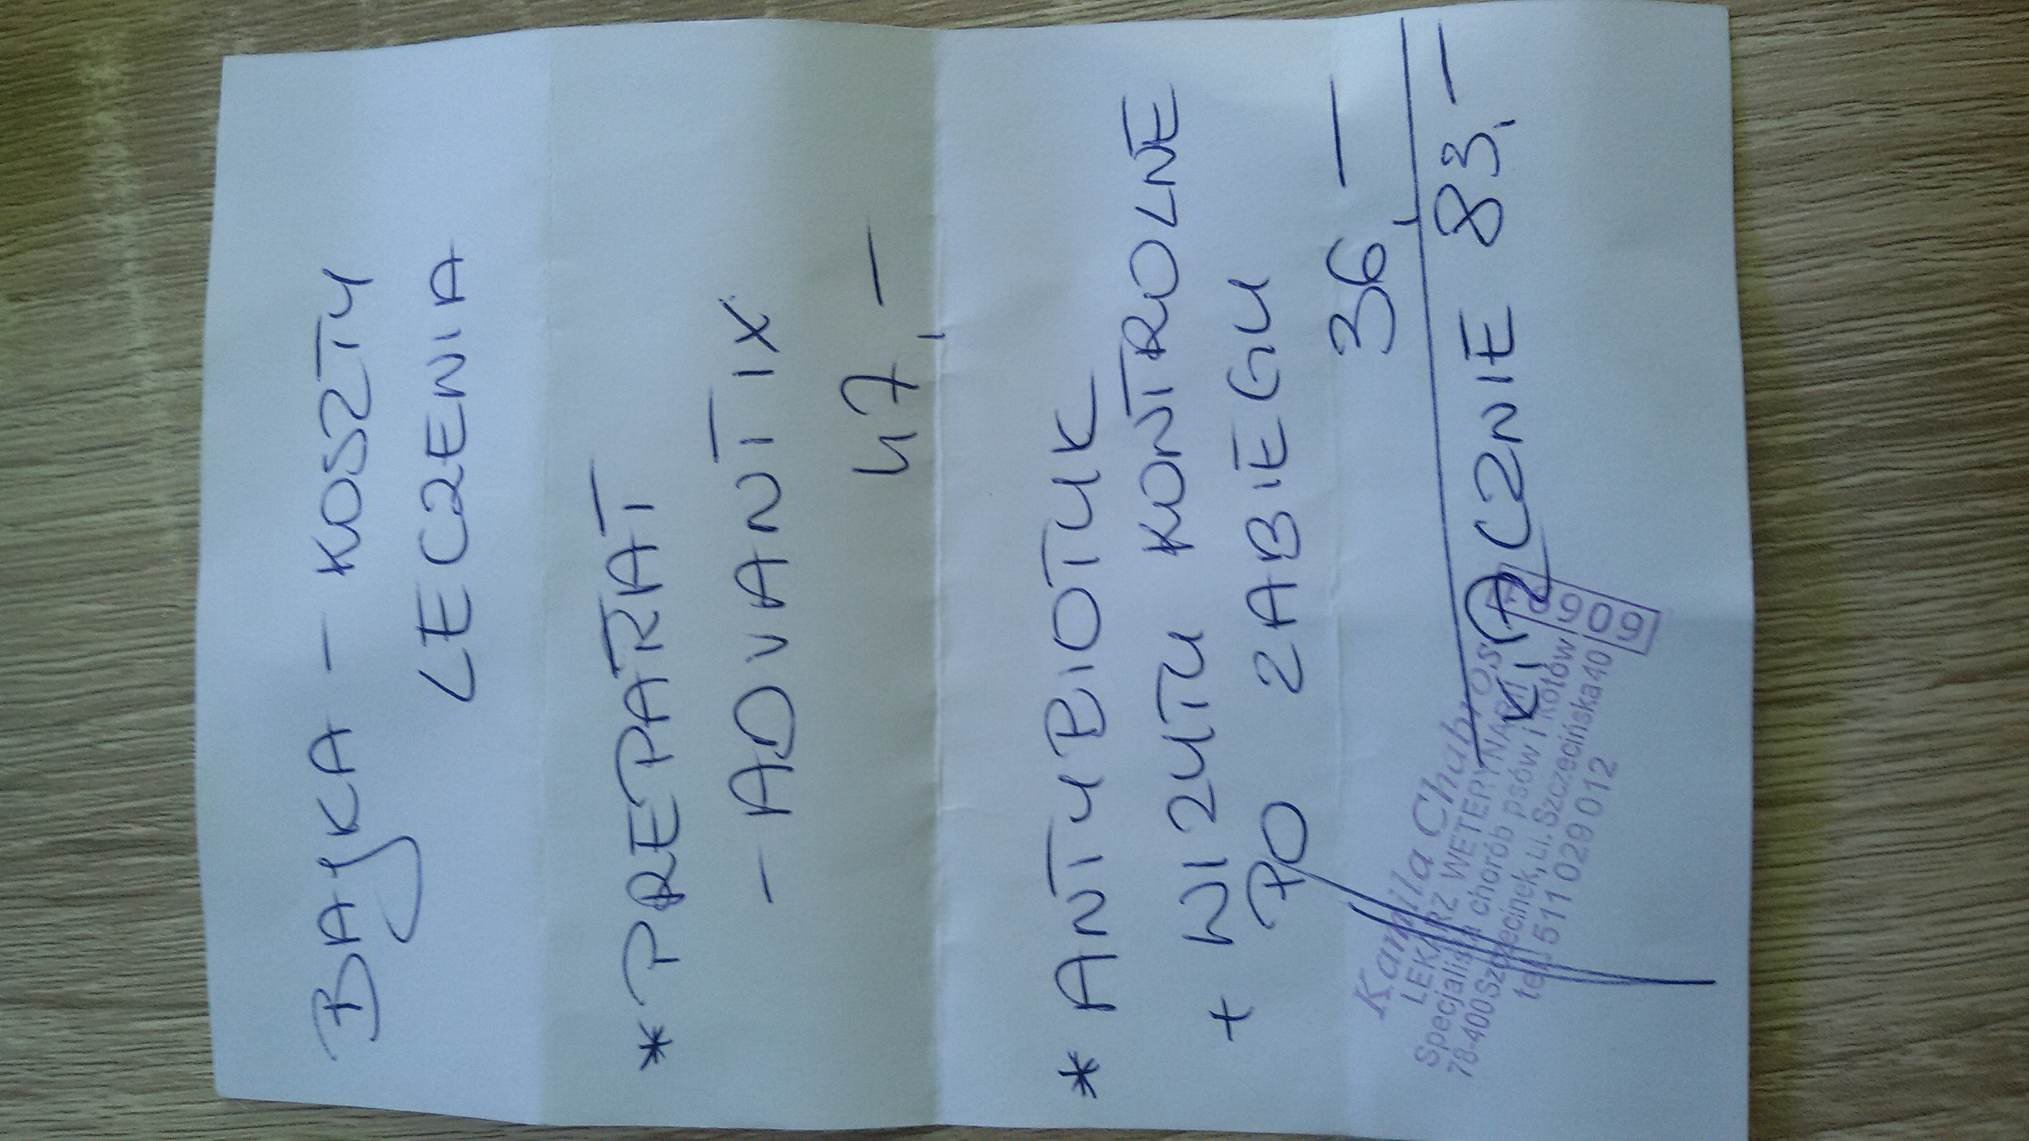 BAJKA - KOSZTY
LECZENIA
* PREPARAT
- ADVANTIX
47,-
* ANTYBIOTYK
+ WIZYTY KONTROLNE
PO ZABIEGU
36,-
ŁĄCZNIE 83,-
Kamila Chabros
LEKARZ WETERYNARII
Specjalista chorób psów i kotów
78-400 Szczecinek, ul. Szczecińska 40
tel. 511 029 012